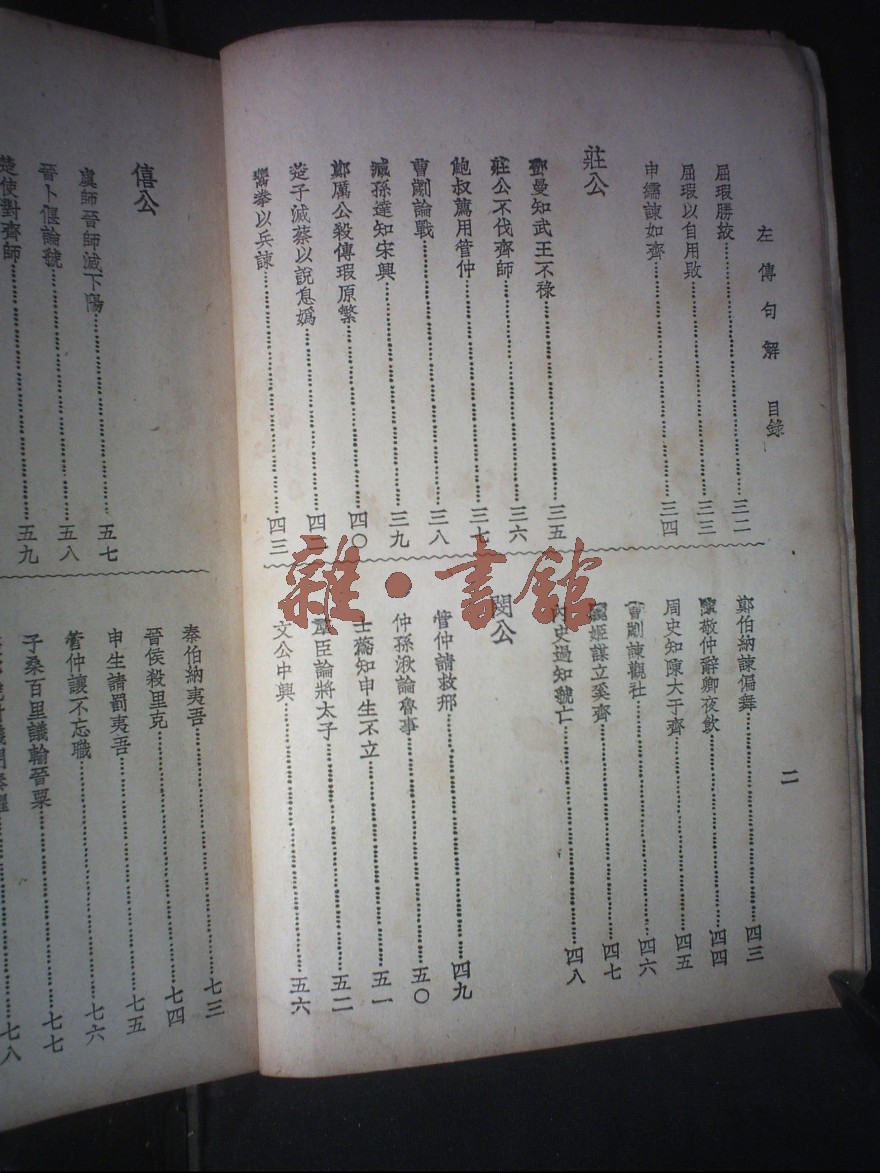 左傳句解 目錄
二
屈瑕勝絞……三二
屈瑕以自用敗……三三
申繻諫如齊……三四
莊公
鄧曼知武王不祿……三五
莊公不伐齊師……三六
鮑叔薦用管仲……三七
曹劌論戰……三八
臧孫達知宋興……三九
鄭厲公殺傅瑕原繁……四〇
楚子滅蔡以說息嬀……四二
鬻拳以兵諫……四三
鄭伯納諫偏舞……四三
敬仲辭卿夜飲……四四
周史知陳大于齊……四五
曹劌諫觀社……四六
驪姬謀立奚齊……四七
內史過知虢亡……四八
閔公
管仲請救邢……四九
仲孫湫論魯事……五〇
士蒍知申生不立……五一
臣論將太子……五二
文公中興……五六
僖公
虞師晉師滅下陽……五七
晉卜偃論虢……五八
楚使對齊師……五九
秦伯納夷吾……七三
晉侯殺里克……七四
申生請罰夷吾……七五
管仲讓不忘職……七六
子桑百里議輸晉粟……七七
七八
雜·書館